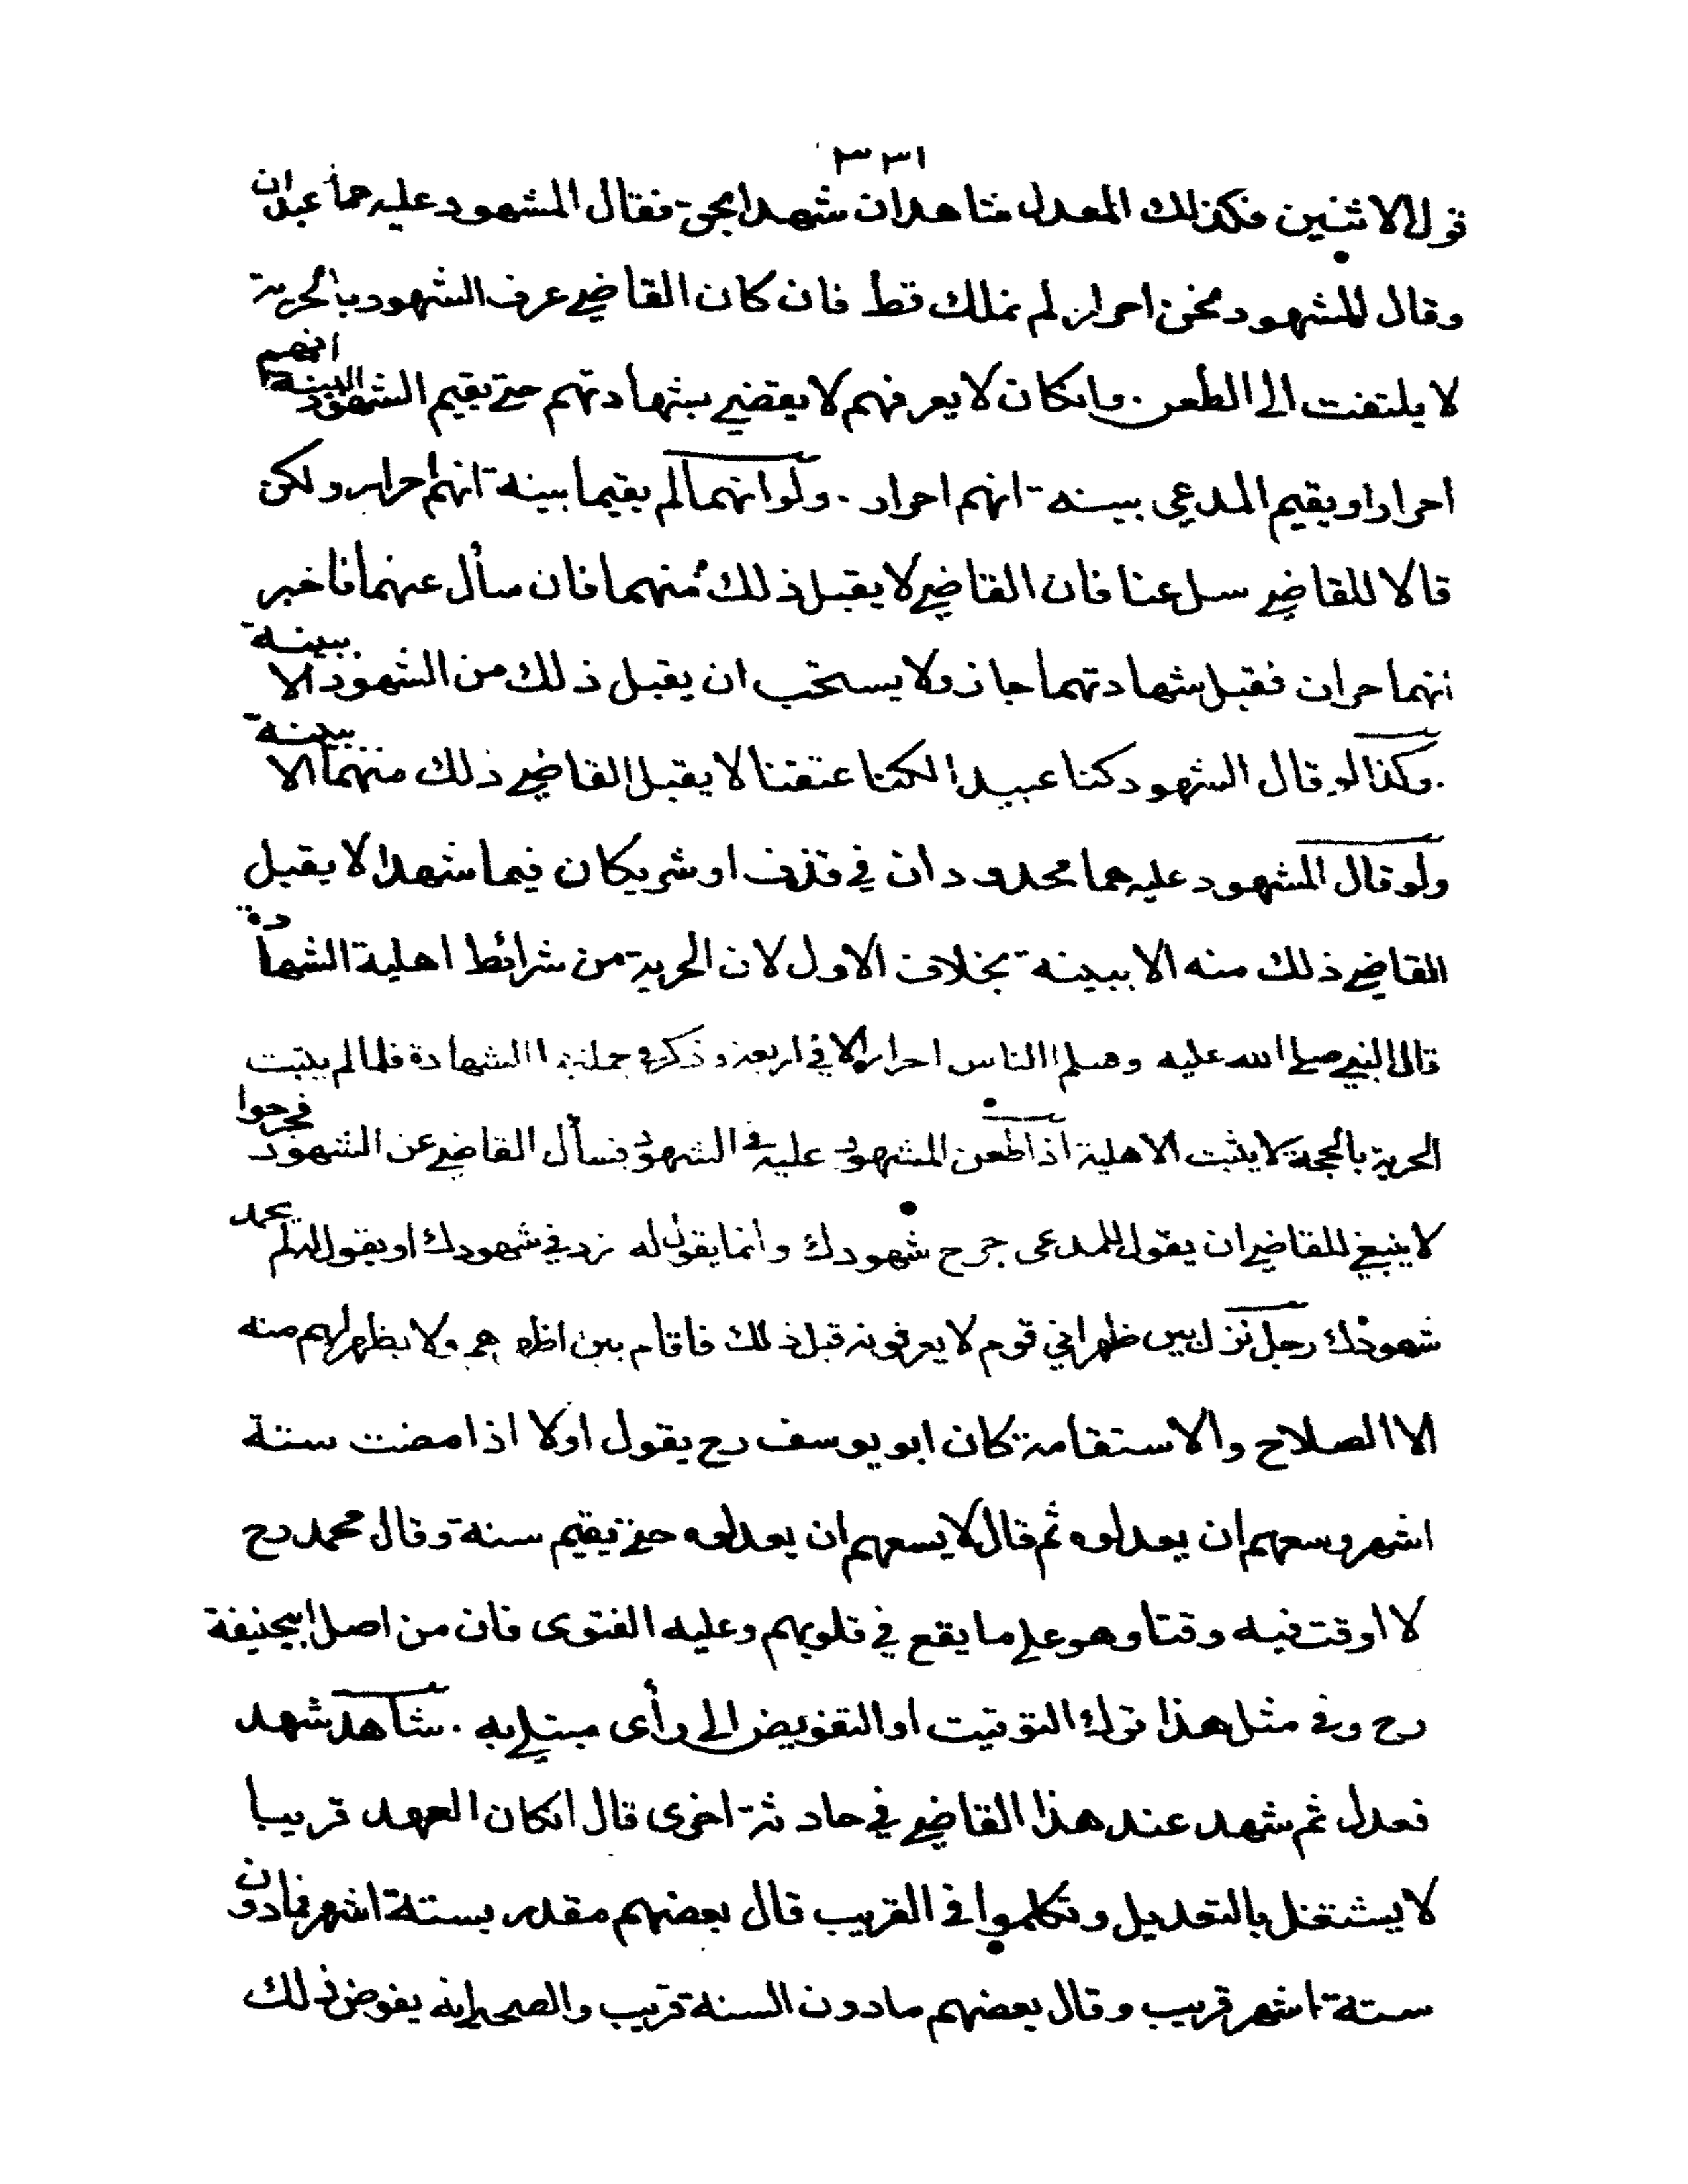 ٣٣١
قول الاثنين فكذلك المعدل شاهدان شهدا بحق فقال المشهود عليه هما عبدان
وقال للشهود نحن احرار لم نملك قط فان كان القاضي عرف الشهود بالحرية
لا يلتفت الى الطعن . وانكان لا يعرفهم لا يقضي بشهادتهم حتى يقيم الشهود البينة انهم
احرار او يقيم المدعي بينة انهم احرار . ولو انهما لم يقيما بينة انهم احرار ولكن
قالا للقاضي سل عنا فان القاضي لا يقبل ذلك منهما فان سأل عنهما فاخبر
انهما حران فقبل شهادتهما جاز ولا يستحب ان يقبل ذلك من الشهود الا ببينة
. وكذا لو قال الشهود كنا عبيدا لكنا عتقنا لا يقبل القاضي ذلك منهما الا ببينة
ولو قال المشهود عليه هما محدودان في قذف او شريكان فيما شهدا لا يقبل
القاضي ذلك منه الا ببينة بخلاف الاول لان الحرية من شرائط اهلية الشهادة
قال النبي صلى الله عليه وسلم الناس احرار الا في اربعة وذكر جملتها الشهادة فلما لم يثبت
الحرية بالحجة لا يثبت الاهلية اذا طعن المشهود عليه في الشهود فسأل القاضي عن الشهود فجرحوا
لا ينبغي للقاضي ان يقول للمدعى جرح شهودك وانما يقول له زد في شهودك او يقول له لم يحمد
شهودك رجل نزل بين ظهراني قوم لا يعرفونه قبل ذلك فاقام بين اظهرهم ولا يظهر لهم منه
الا الصلاح والاستقامة كان ابو يوسف رح يقول اولا اذا مضت ستة
اشهر وسعهم ان يعدلوه ثم قال لا يسعهم ان يعدلوه حتى يقيم سنة وقال محمد رح
لا اوقت فيه وقتا وهو على ما يقع في قلوبهم وعليه الفتوى فان من اصل ابيحنيفة
رح وفي مثل هذا ترك التوقيت او التفويض الى رأى مبتلى به . شاهد شهد
فعدل ثم شهد عند هذا القاضي في حادثة اخرى قال انكان العهد قريبا
لا يشتغل بالتعديل وتكلموا في القريب قال بعضهم مقدر بستة اشهر فمادون
ستة اشهر قريب وقال بعضهم مادون السنة قريب والصحيح انه يفوض ذلك